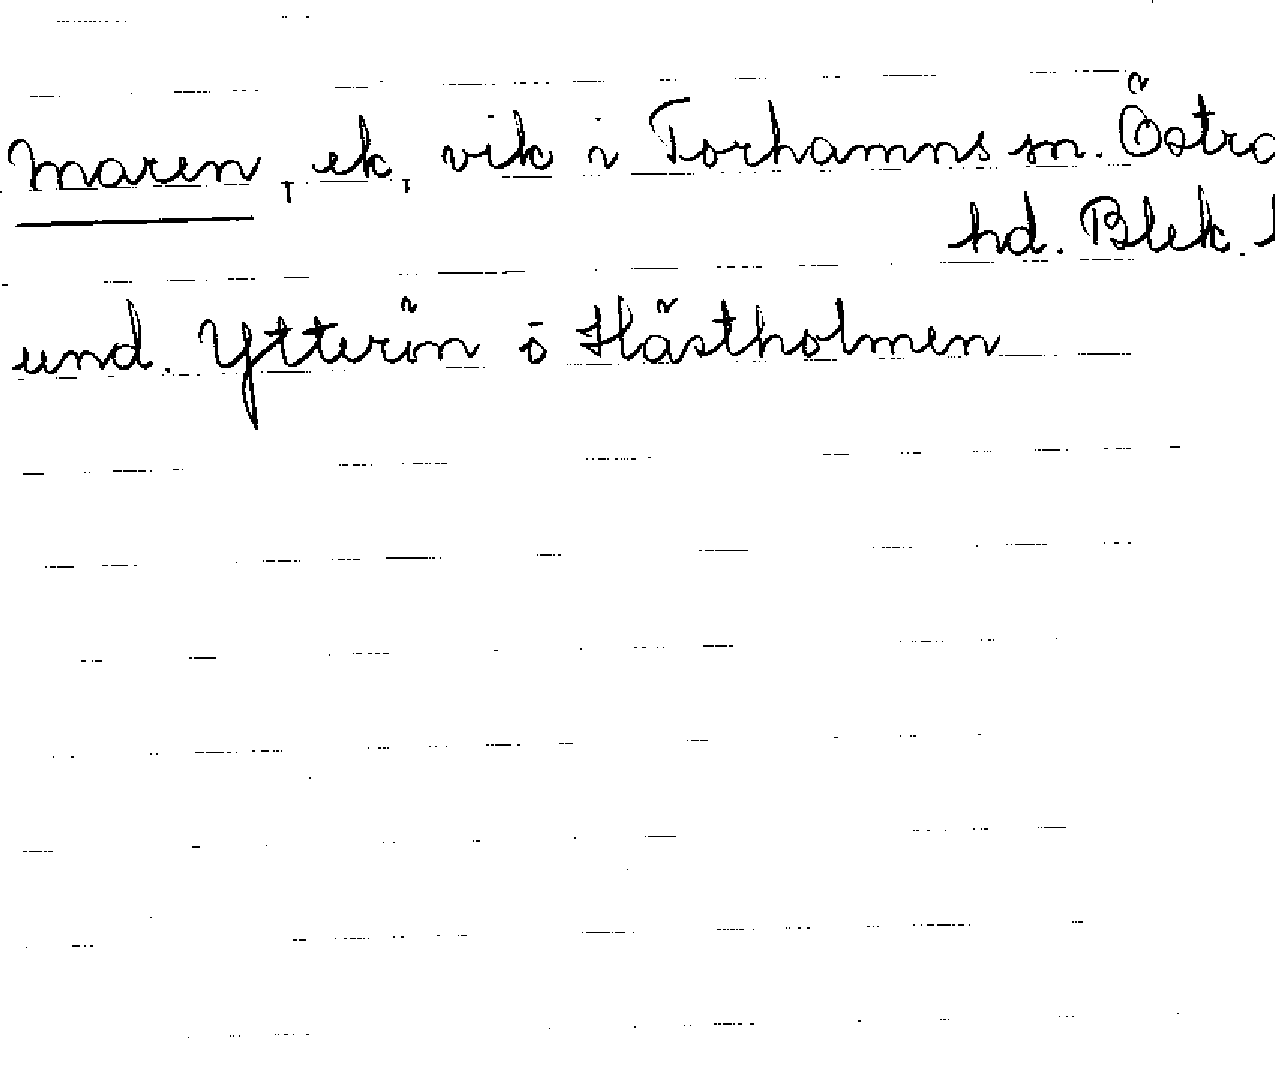 Maren, ek, vik i Torhamns sn. Östra
hd. Blek.
und. Ytterön ö Hästholmen